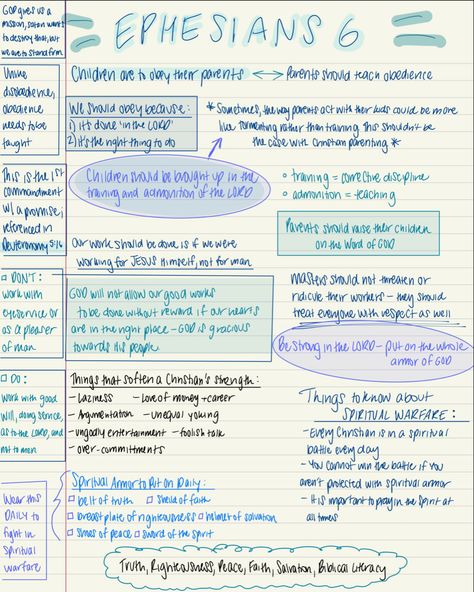 EPHESIANS 6
GOD gives us a
mission, satan wants
to destroy that, but
we are to stand firm.
Unlike
disobedience,
obedience
needs to be
taught
Children are to obey their parents ⟷ Parents should teach obedience
We should obey because:
1) it's done "in the LORD"
2) it's the right thing to do
* Sometimes, the way parents act with their kids could be more
like tormenting rather than training. This shouldn't be
the case with Christian parenting *
This is the 1st
commandment
w/ a promise,
referenced in
Deuteronomy 5:16
Children should be brought up in the
training and admonition of the LORD
◦ training = corrective discipline
◦ admonition = teaching
Parents should raise their children
on the Word of GOD
Our work should be done as if we were
working for JESUS Himself, not for man
□ DON'T:
work with
eyeservice or
as a pleaser
of man
GOD will not allow our good works
to be done without reward if our hearts
are in the right place - GOD is gracious
towards His people
Masters should not threaten or
ridicule their workers - they should
treat everyone with respect as well
Be strong in the LORD - put on the whole
armor of GOD
□ DO:
work with good
will, doing service,
as to the LORD, and
not to men
Things that soften a Christian's strength:
- Laziness - Love of money + career
- Argumentation - unequal yoking
- ungodly entertainment - foolish talk
- over-commitments
Things to know about
SPIRITUAL WARFARE:
- Every Christian is in a spiritual
battle every day
- You cannot win the battle if you
aren't protected with spiritual armor
- It is important to pray in the Spirit at
all times
Wear this
DAILY to
fight in
Spiritual
warfare
Spiritual Armor to Put on Daily:
□ belt of truth □ shield of faith
□ breastplate of righteousness □ helmet of salvation
□ shoes of peace □ sword of the spirit
Truth, Righteousness, Peace, Faith, Salvation, Biblical Literacy